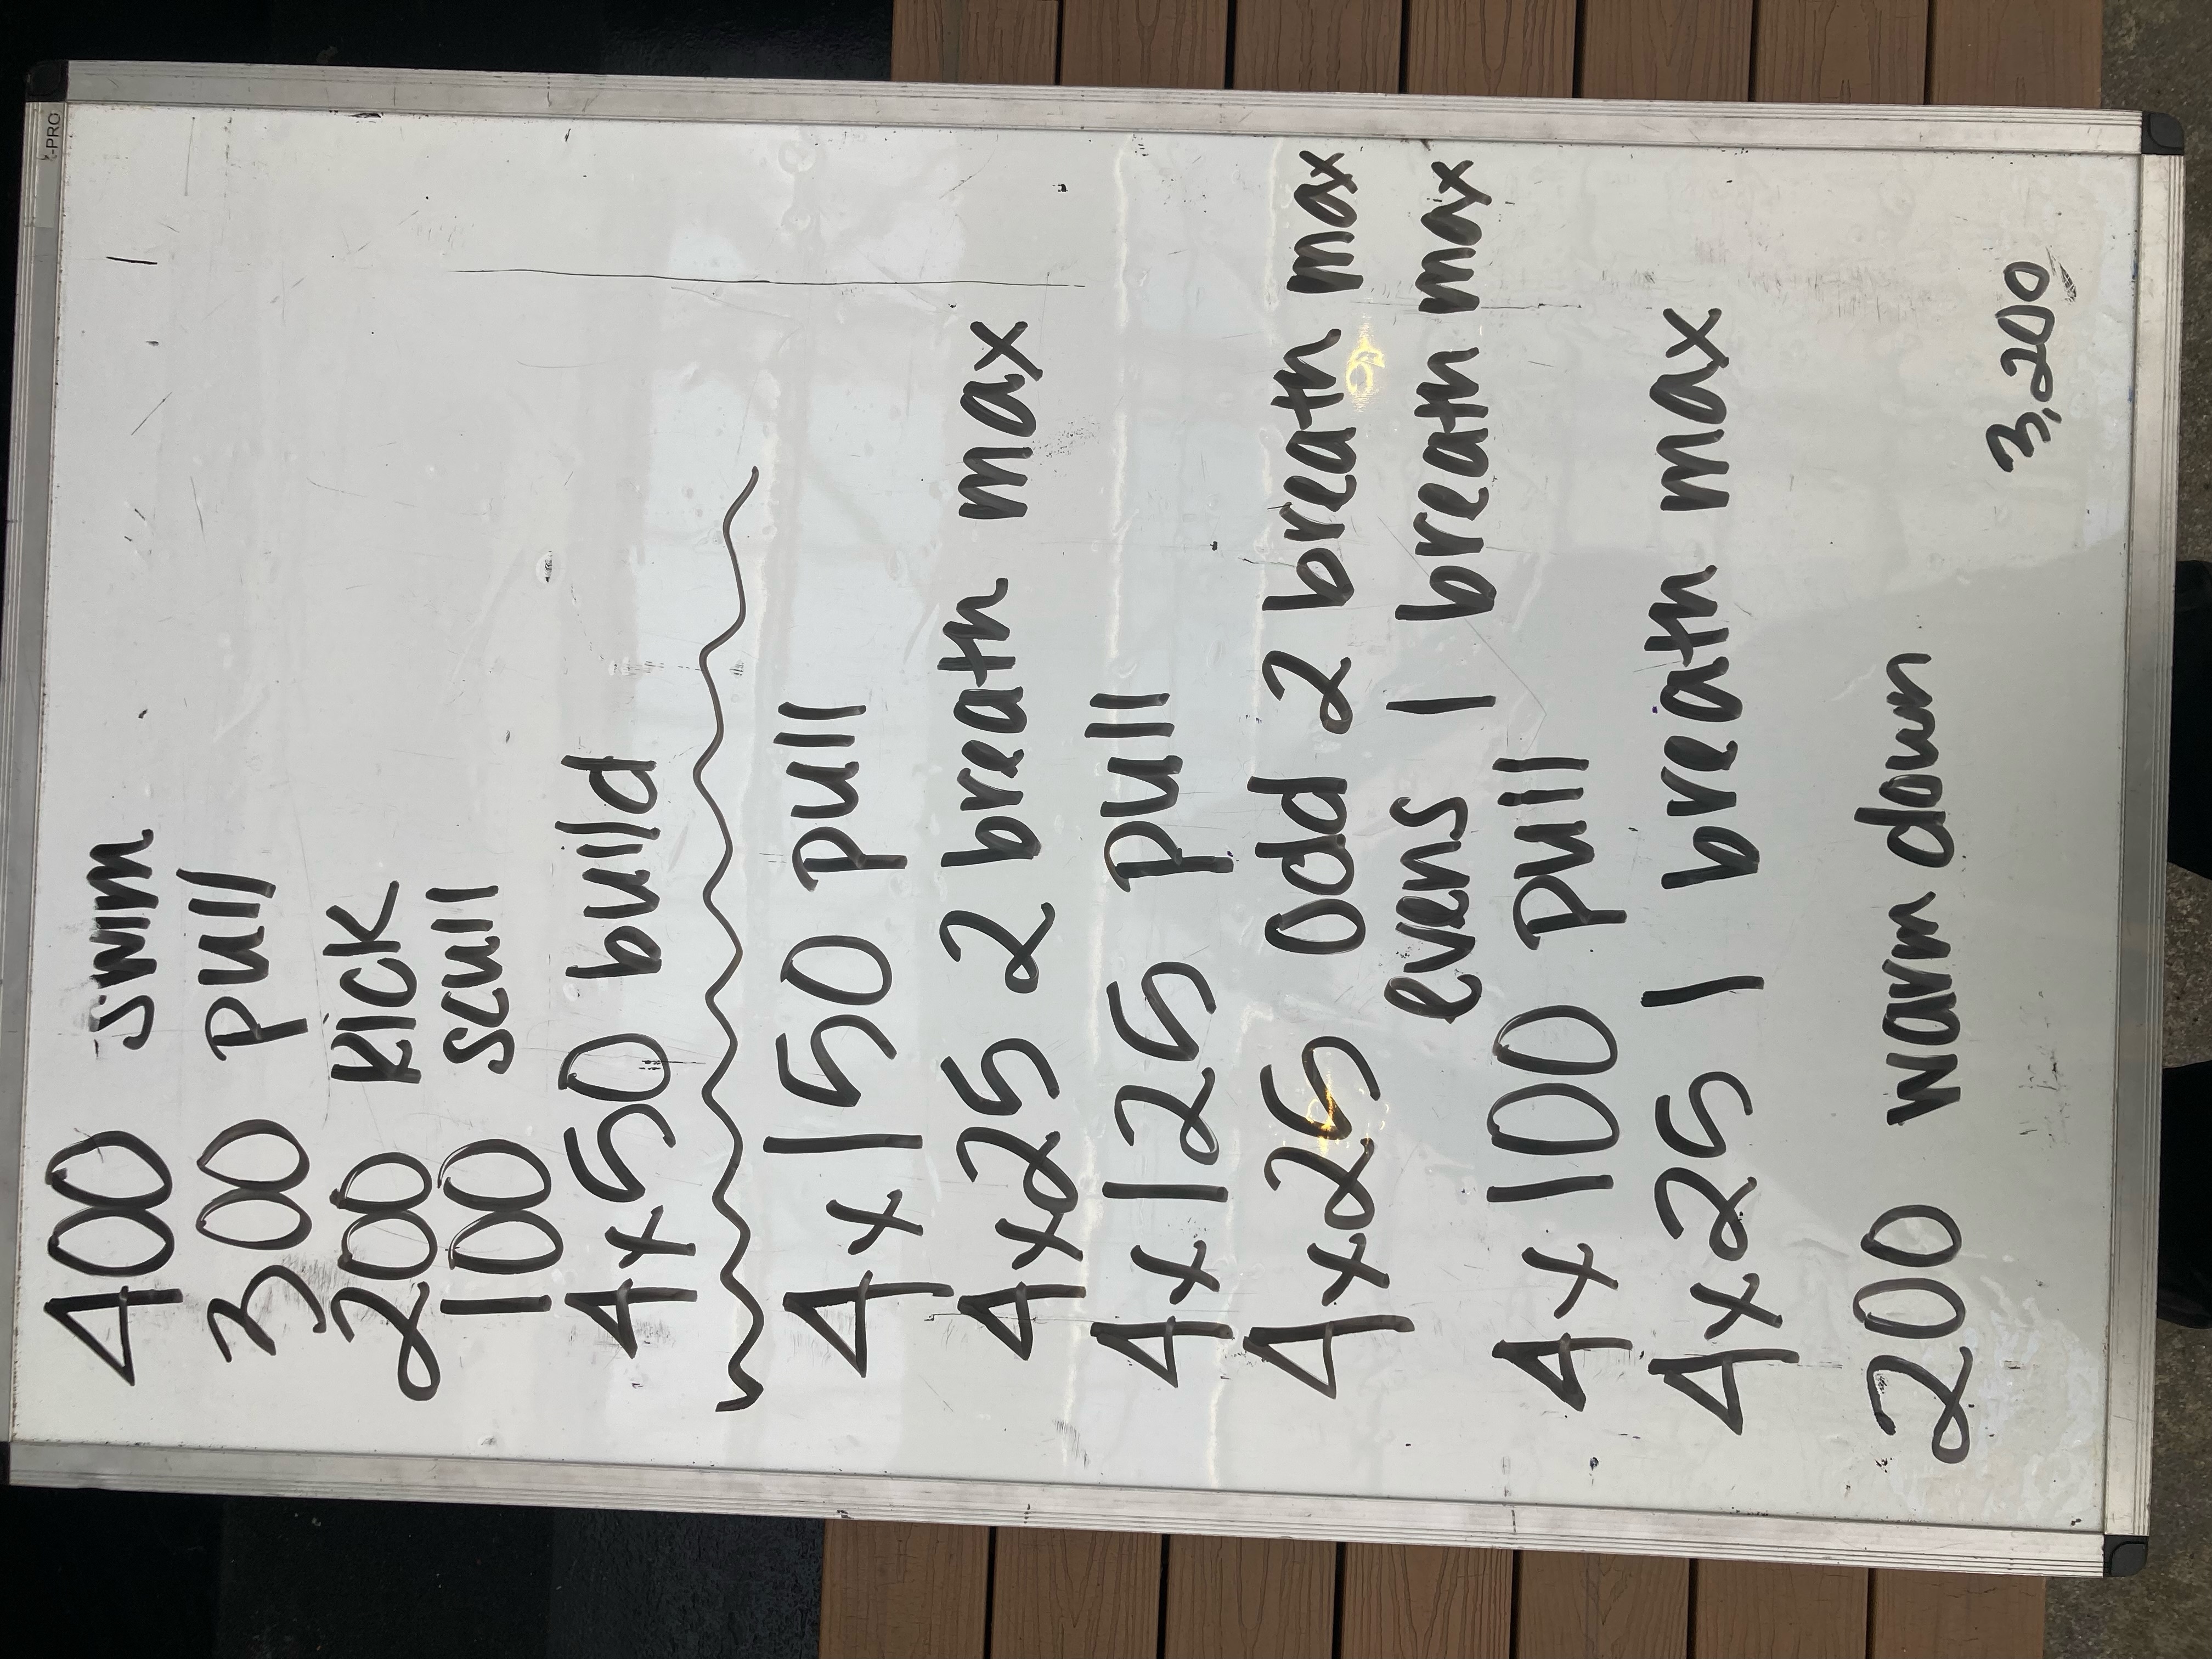 400 swim
300 pull
200 kick
100 scull
4x50 build
4x150 pull
4x25 2 breath max
4x125 pull
4x25 Odd 2 breath max
evens 1 breath max
4x100 pull
4x25 1 breath max
200 warm down
3,200